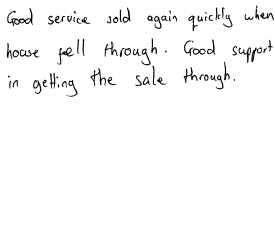 Good service sold again quickly when
house fell through. Good support
in getting the sale through.